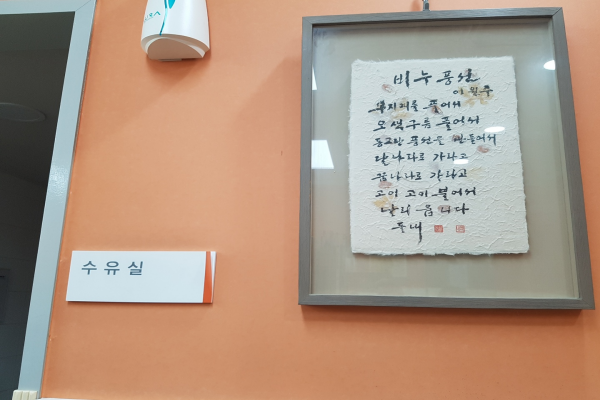 비누 풍선
이원수
무지개를 풀어서
오색 구름 풀어서
동그란 풍선을 만들어서
달나라로 가라고
꿈나라로 가라고
고이 고이 불어서
날리웁니다
수유실